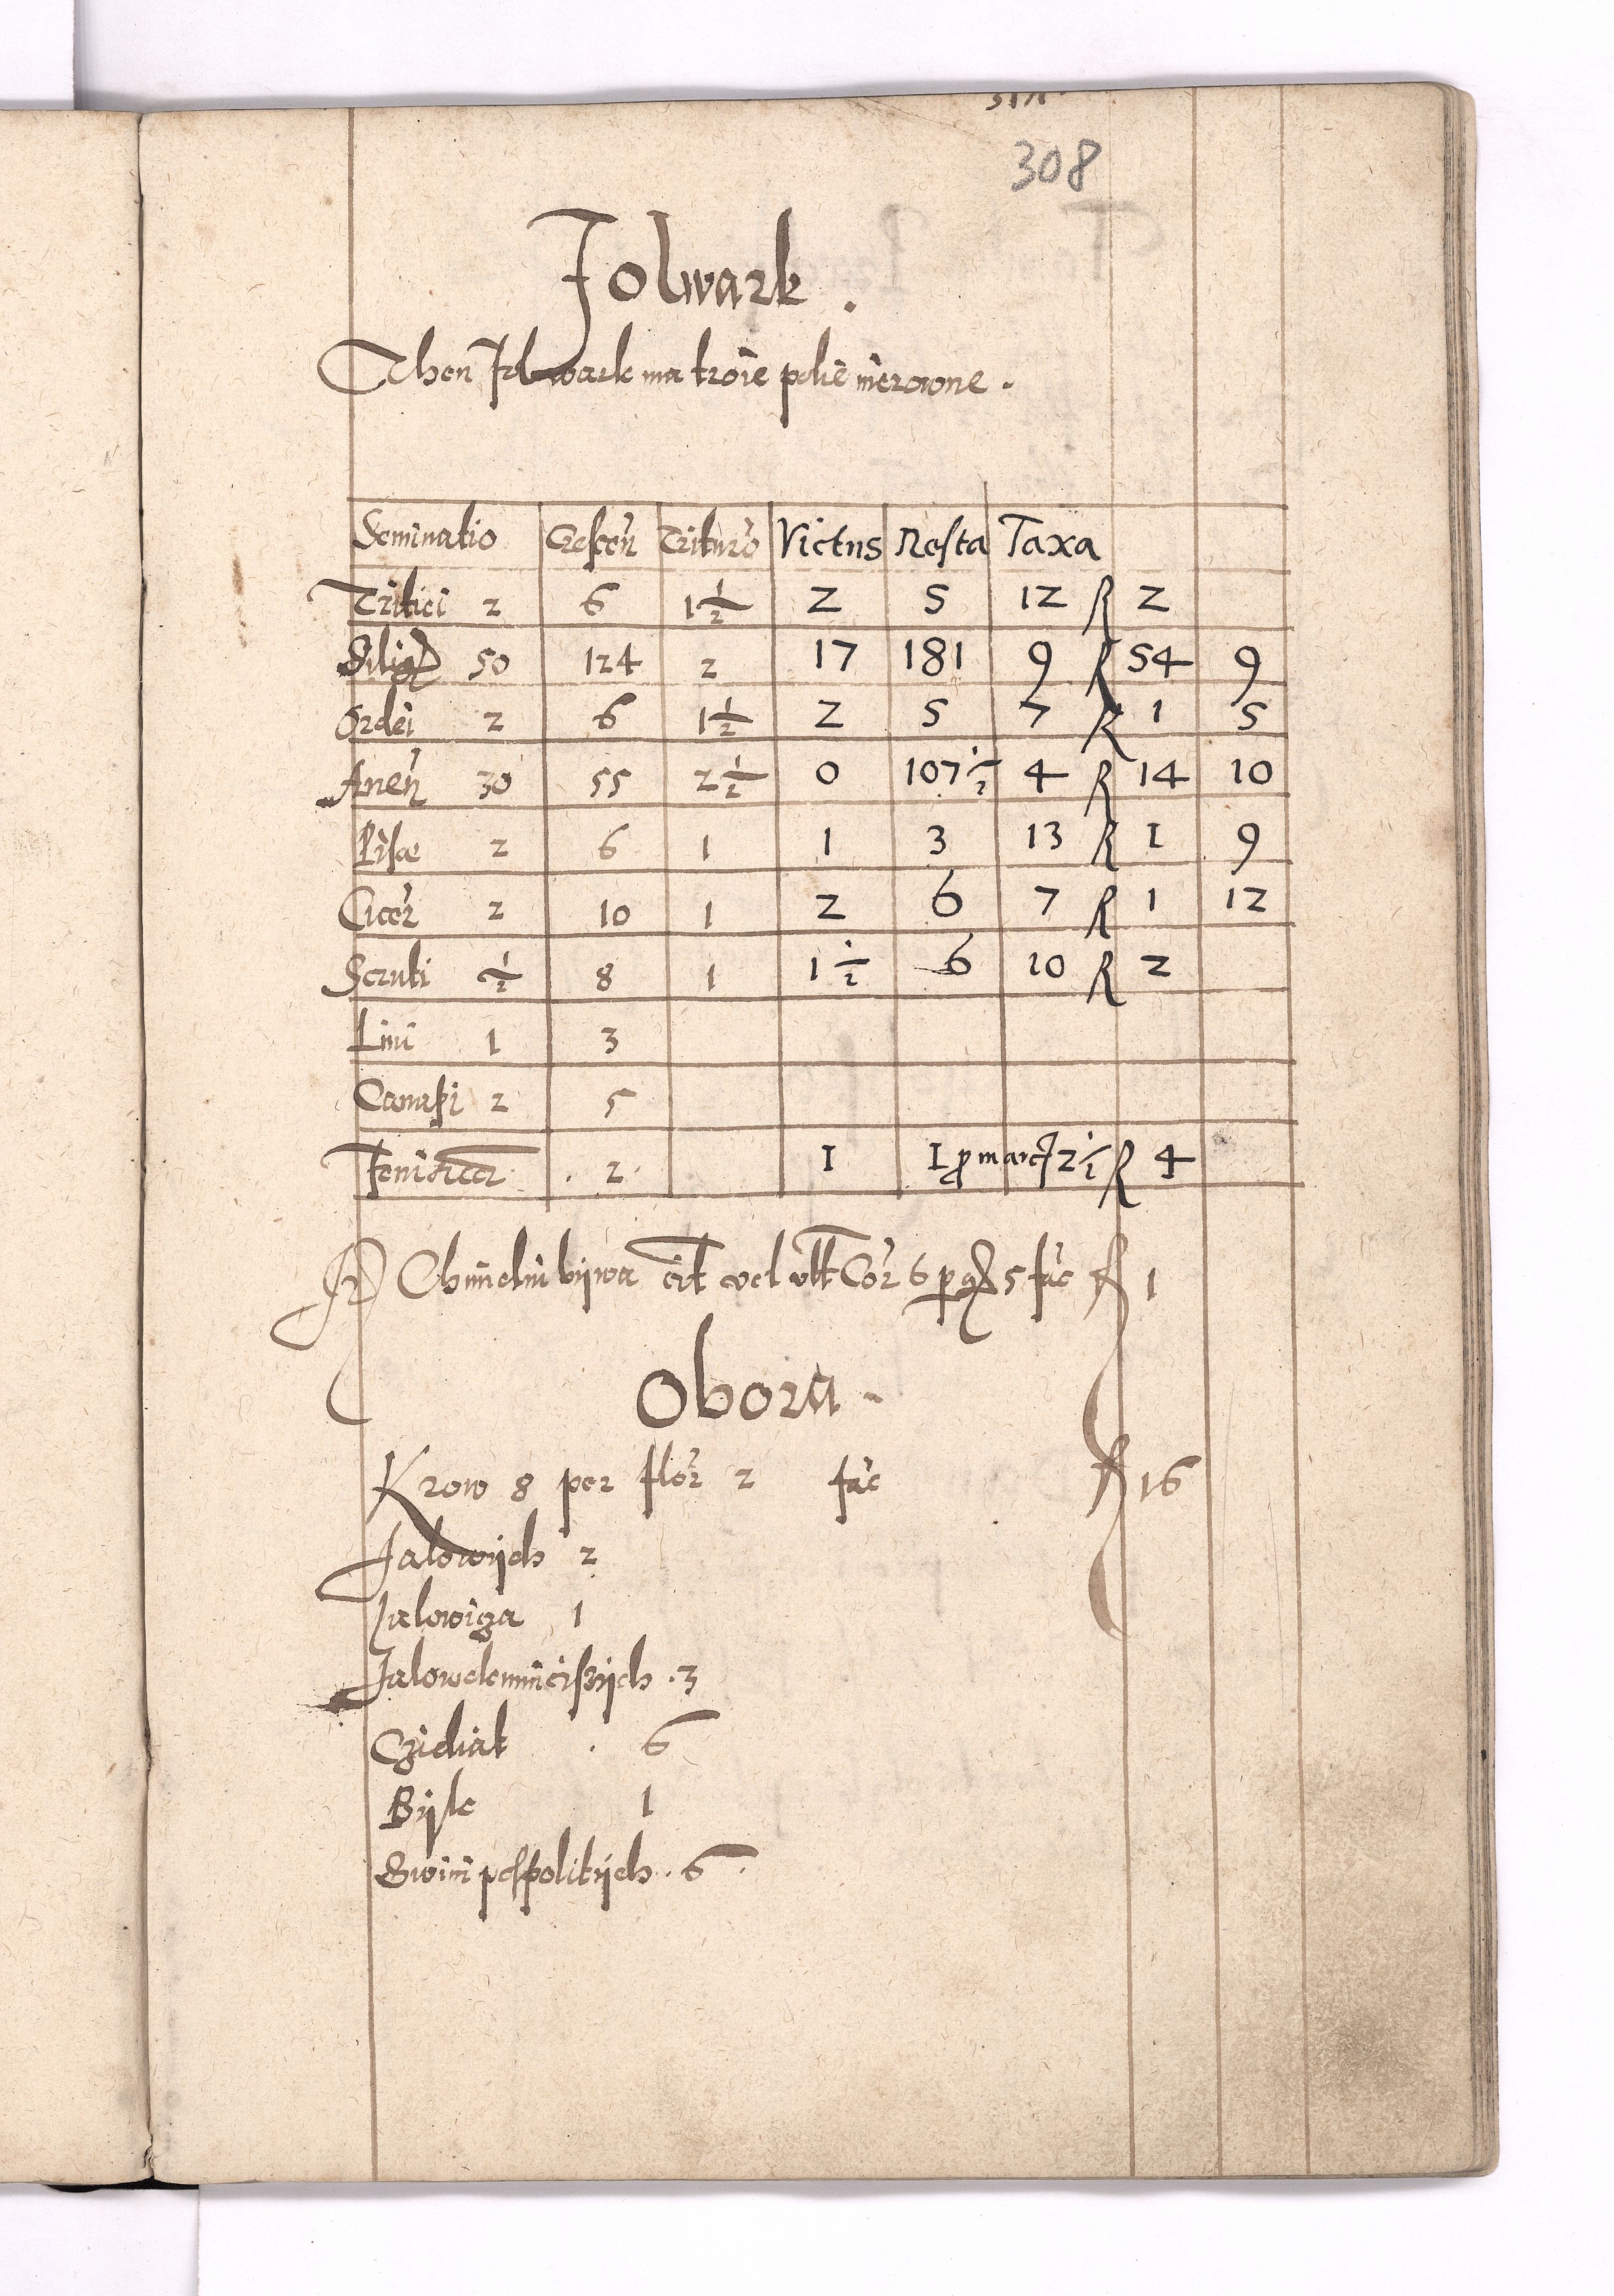 308
Folwark.
Then Folwark ma troie polie nierowne.
Seminatio Crescen Tritura Victus Resta Taxa
Tritici 2 6 1½ 2 5 12 R 2
Silig 50 124 2 17 181 9 R 54 9
Ordei 2 6 1½ 2 5 7 R 1 5
Aven 30 55 2½ 0 107½ 4 R 14 10
Pisae 2 6 1 1 3 13 R 1 9
Cicer 2 10 1 2 6 7 R 1 12
Scruti ½ 8 1 1½ 6 10 R 2
Lini 1 3
Canapi 2 5
Feni 2 1 1 pro marc 2½ R 4
It Chmieliu bijwa cirt vel ult Cor 6 per gr 5 fac R 1
Obora.
Krow 8 per flor 2 fac R 16
Jalowijch 2
Jalowiza 1
Jalowcleimnieiszijch . 3
Czieliat . 6
Bijk 1
Swini pospolitijch . 6